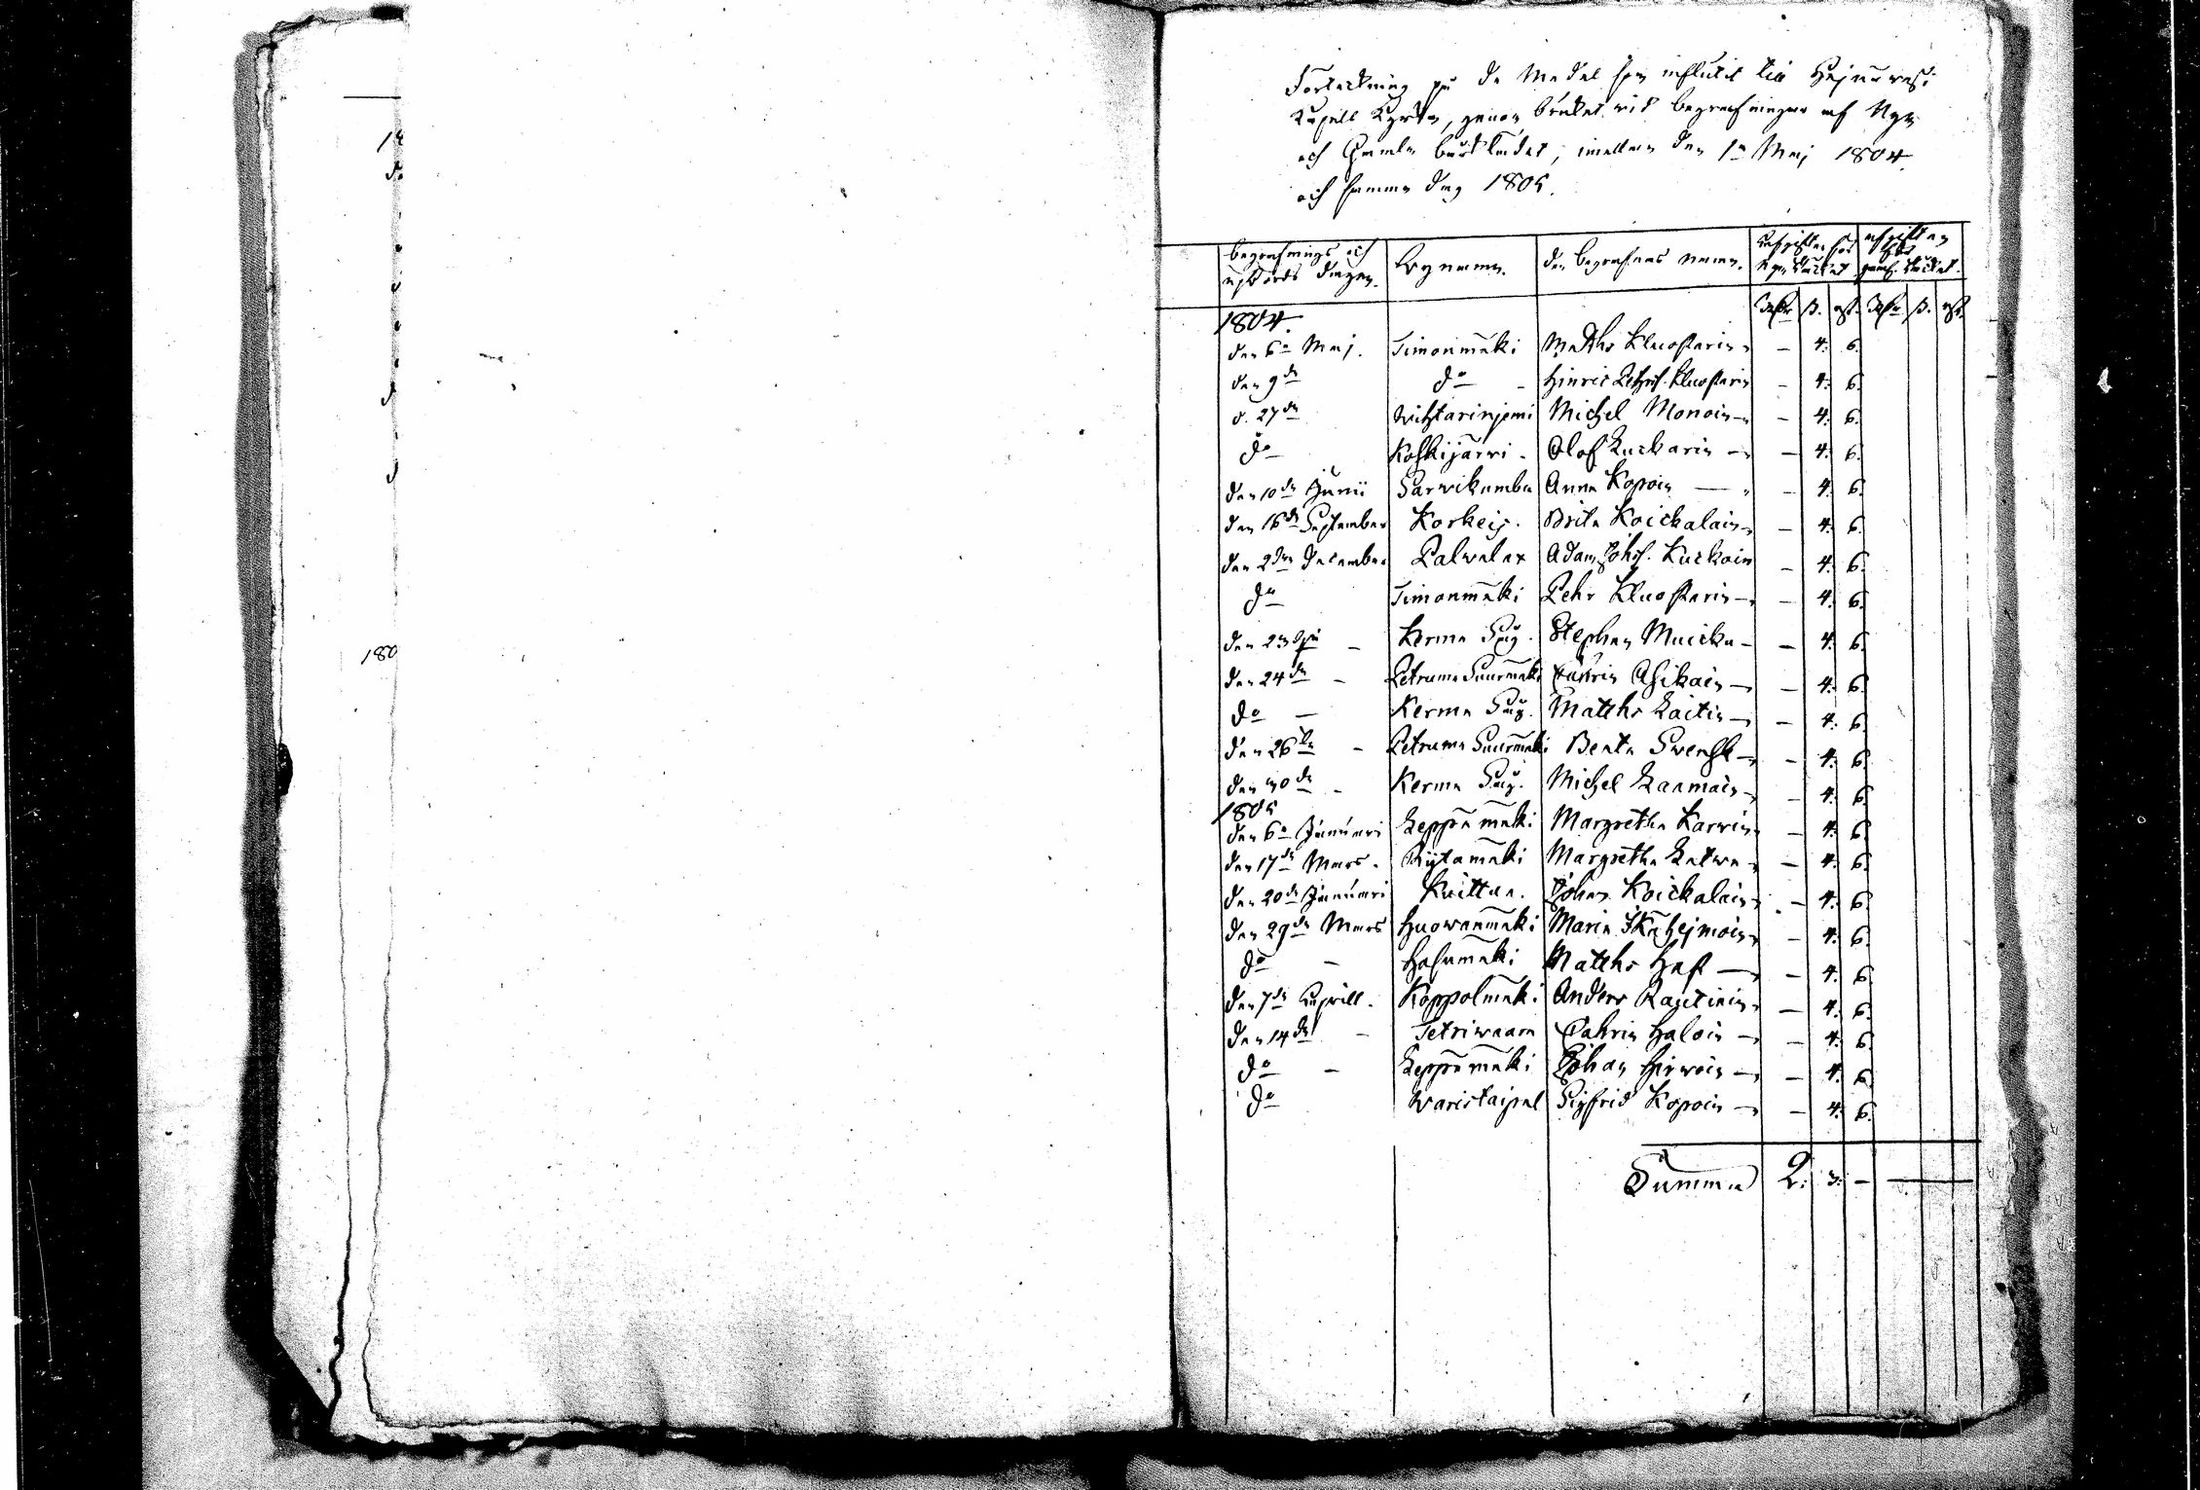 18
d:o
180
Förteckning på de Medel som influtit till Hejnäwesi
Kapells Kyrka, genom bruket vid begrafningar af Nya
och Gamla bårklädet, imellan den 1a Maj 1804
och samma dag 1805.
begrafnings och Bynamn. den begrafnas namn. afgiften för afgiften för
nya klädet gaml. klädet.
Rdr ß. rst. Rdr ß. rst.
1804.
den 6te Maj. Timonmäki Matths Kluostarin — 4: 6.
den 9de do — Hinric Kluostarin — 4: 6.
d. 27de Wihtarinjemi Michel Monoin — — 4: 6.
do Koskijärwi Olof Kuckarin — — 4: 6.
den 10de Junii Sarwikumbu Anna Kopoin — — 4: 6.
den 16de September Korkeis. Brita Koickalain — 4: 6.
den 2dra December Palwalax Adam Johs. Kuckoin — 4: 6.
do Timonmäki Pehr Kluostarin — — 4: 6.
den 23 — Kerma Stephan Muicku — — 4: 6.
den 24de — Petruma Suurmäki Cathrin Asikain — — 4: 6.
do — Kerma Matths Laitin — — 4: 6.
den 26te — Petruma Suurmäki Beata Swensk — — 4: 6.
den 30de — Kerma Michel Lanmain — — 4: 6.
1805
den 6te Januari Leppämäki Margretha Karwin — 4: 6.
den 17de Mars. Pijtämäki Margretha Latwa — 4: 6.
den 20de Januari Kuittua. Johan Koickalain — 4: 6.
den 29de Mars Huowanmäki Maria Ikähejmoin — 4: 6.
do — Hasumäki Matths Hast — — 4: 6.
den 7de Aprill. Koppolmäki Anders Rautiain — 4: 6.
den 14de — Tetriwaara Cathrin Haloin — — 4: 6.
do — Leppämäki Johan Hirwoin — — 4: 6.
do Waristaipal Sigfrid Kopoin — — 4: 6.
Summa 2: 3: — —